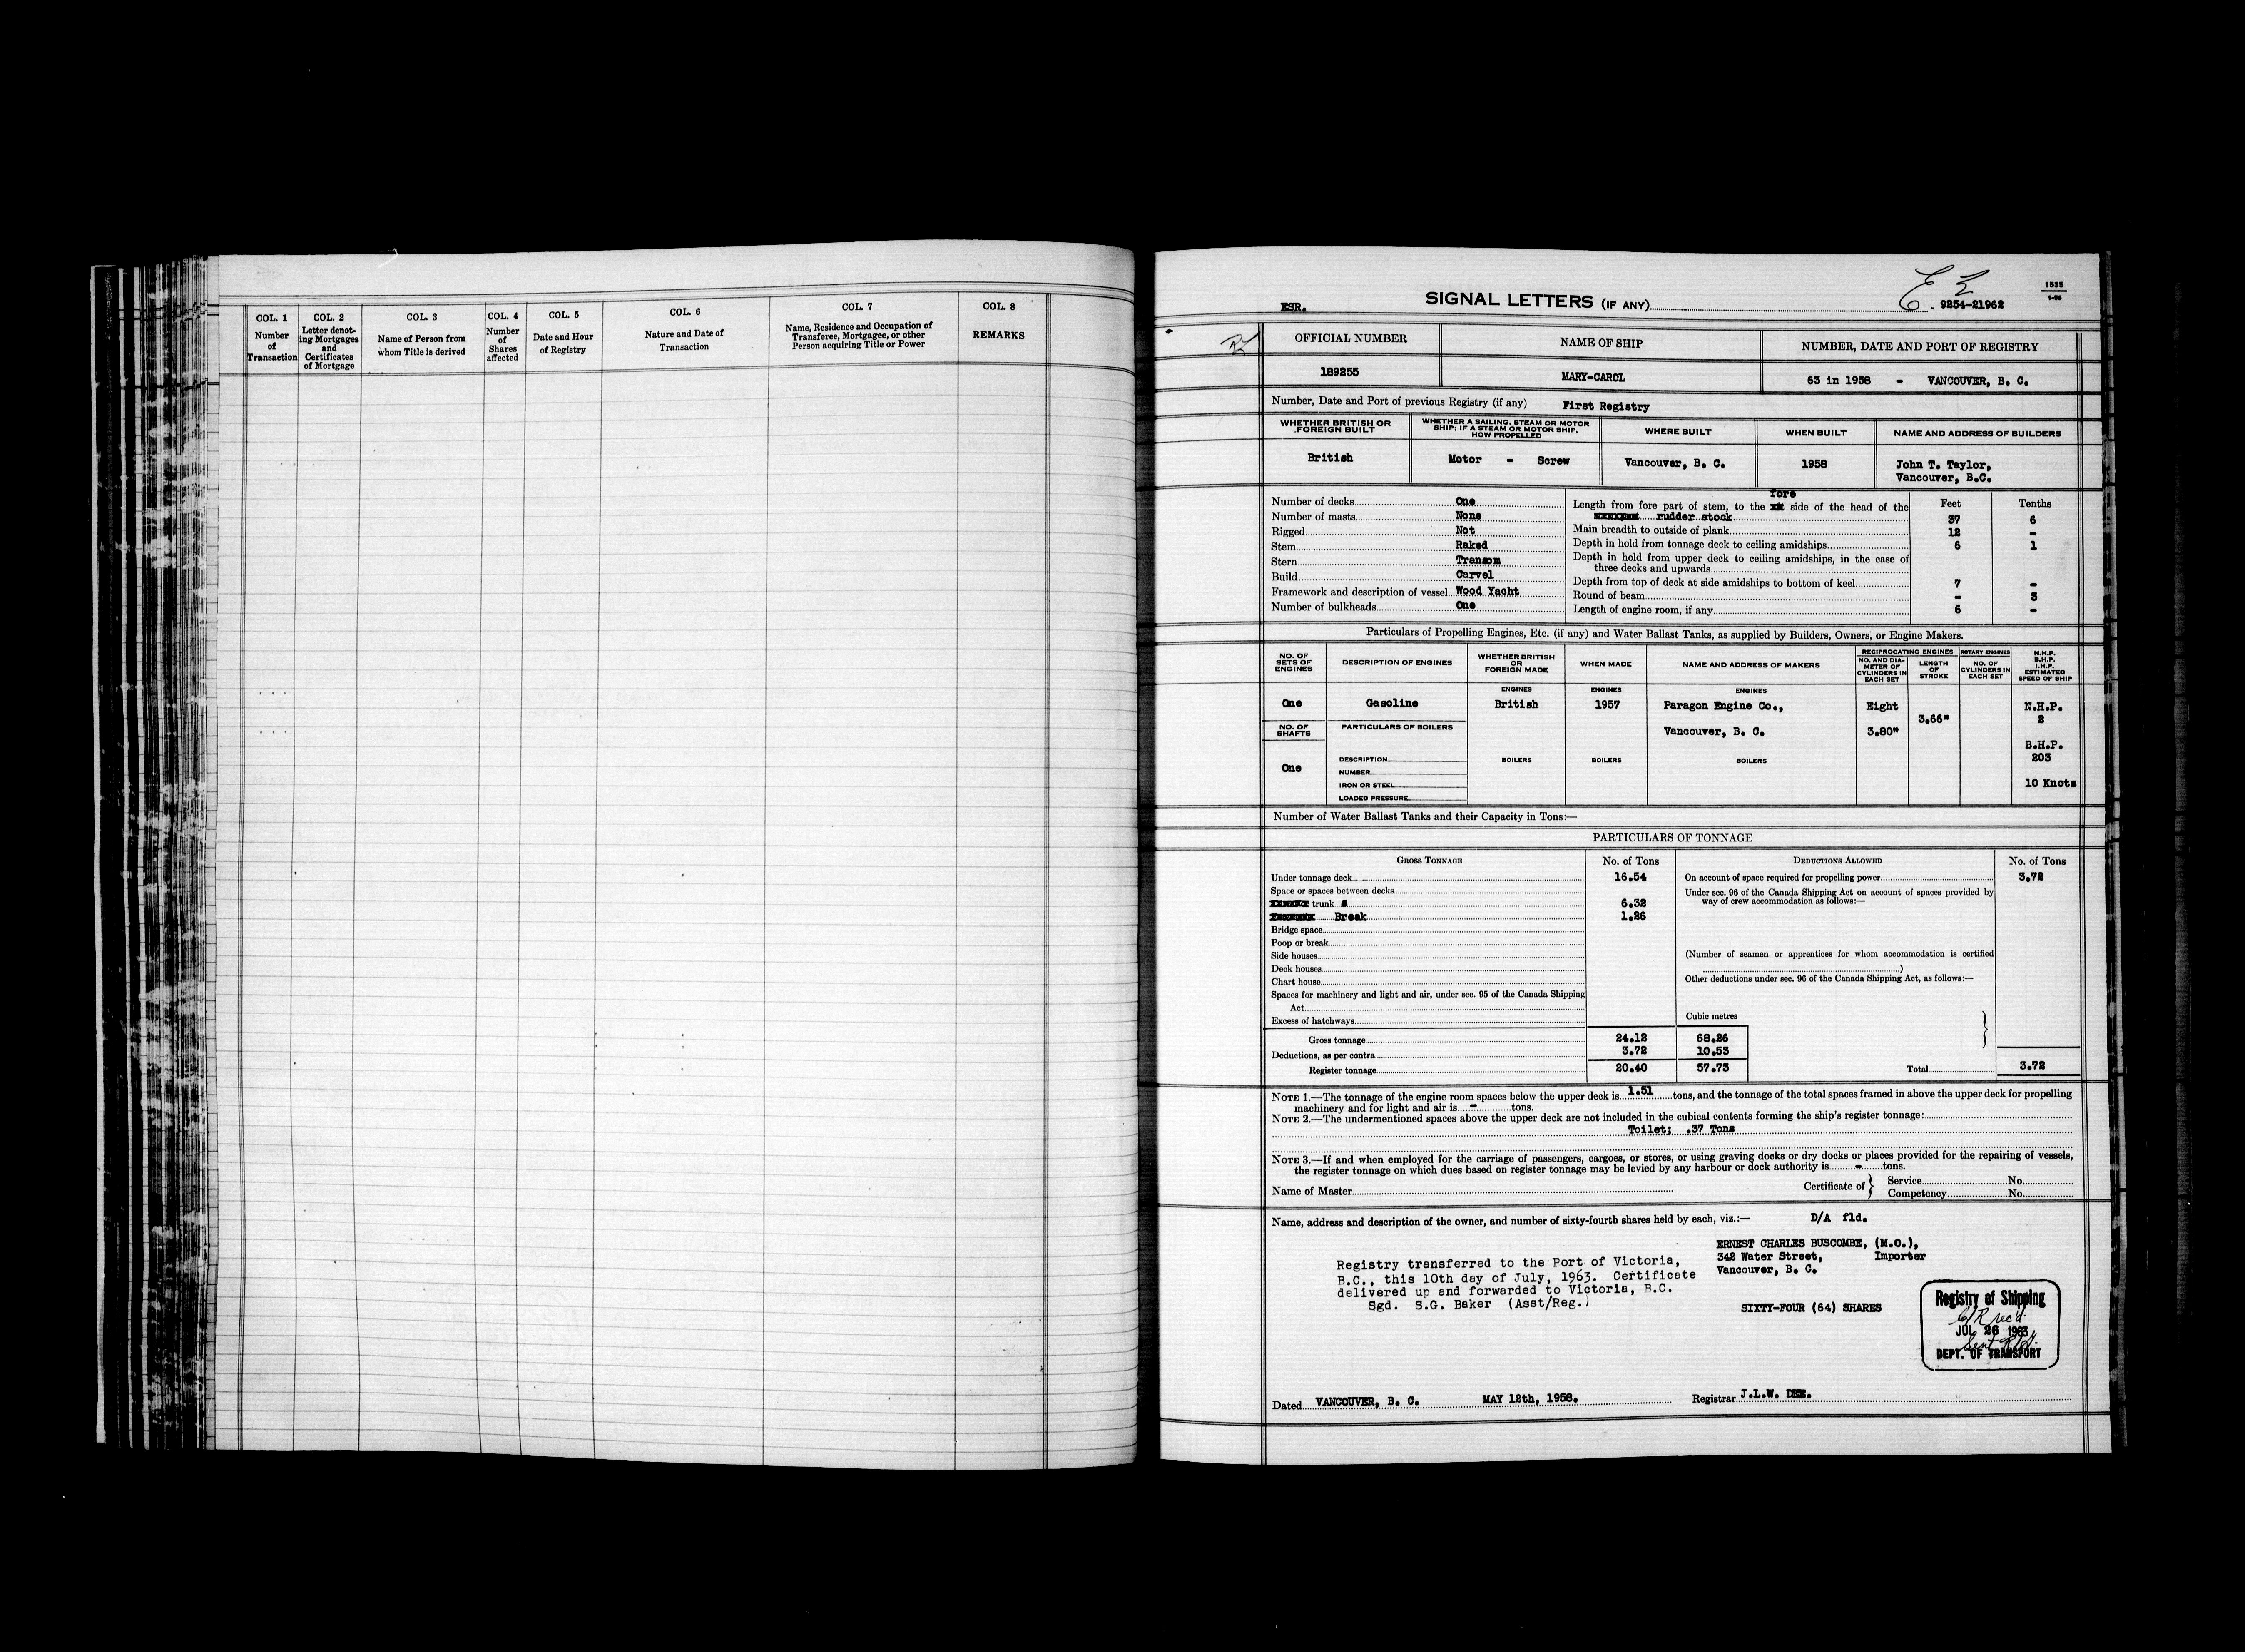 COL. 1
Number
of
Transaction
COL. 2
Letter denot-
ing Mortgages
and
Certificates
of Mortgage
COL. 3
Name of Person from
whom Title is derived
COL. 4
Number
of
Shares
affected
COL. 5
Date and Hour
of Registry
COL. 6
Nature and Date of
Transaction
COL. 7
Name, Residence and Occupation of
Transferee, Mortgagee, or other
Person acquiring Title or Power
COL. 8
REMARKS
ESR. SIGNAL LETTERS (IF ANY) 9254-21962
1535
OFFICIAL NUMBER NAME OF SHIP NUMBER, DATE AND PORT OF REGISTRY
189255 MARY-CAROL 63 in 1958 - VANCOUVER, B. C.
Number, Date and Port of previous Registry (if any) First Registry
WHETHER BRITISH OR
FOREIGN BUILT
WHETHER A SAILING, STEAM OR MOTOR
SHIP; IF A STEAM OR MOTOR SHIP,
HOW PROPELLED
WHERE BUILT WHEN BUILT NAME AND ADDRESS OF BUILDERS
British Motor - Screw Vancouver, B. C. 1958 John T. Taylor,
Vancouver, B.C.
Number of decks One
Number of masts None
Rigged Not
Stem Raked
Stern Transom
Build Carvel
Framework and description of vessel Wood Yacht
Number of bulkheads One
Feet Tenths
fore
Length from fore part of stem, to the side of the head of the
rudder stock 37 6
Main breadth to outside of plank 12 -
Depth in hold from tonnage deck to ceiling amidships 6 1
Depth in hold from upper deck to ceiling amidships, in the case of
three decks and upwards
Depth from top of deck at side amidships to bottom of keel 7 -
Round of beam - 3
Length of engine room, if any 6 -
Particulars of Propelling Engines, Etc. (if any) and Water Ballast Tanks, as supplied by Builders, Owners, or Engine Makers.
NO. OF
SETS OF
ENGINES
DESCRIPTION OF ENGINES
WHETHER BRITISH
OR
FOREIGN MADE
WHEN MADE
NAME AND ADDRESS OF MAKERS
RECIPROCATING ENGINES
NO. AND DIA-
METER OF
CYLINDERS IN
EACH SET
LENGTH
OF
STROKE
ROTARY ENGINES
NO. OF
CYLINDERS IN
EACH SET
N.H.P.
B.H.P.
I.H.P.
ESTIMATED
SPEED OF SHIP
ENGINES ENGINES ENGINES
One Gasoline British 1957 Paragon Engine Co., Eight N.H.P.
3.66" 2
NO. OF
SHAFTS
PARTICULARS OF BOILERS
Vancouver, B. C. 3.80"
B.H.P.
203
One
DESCRIPTION BOILERS BOILERS BOILERS
NUMBER
IRON OR STEEL 10 Knots
LOADED PRESSURE
Number of Water Ballast Tanks and their Capacity in Tons:—
PARTICULARS OF TONNAGE
GROSS TONNAGE No. of Tons DEDUCTIONS ALLOWED No. of Tons
Under tonnage deck 16.54
Space or spaces between decks
trunk 6.32
Break 1.26
Bridge space
Poop or break
Side houses
Deck houses
Chart house
Spaces for machinery and light and air, under sec. 95 of the Canada Shipping
Act
Excess of hatchways
On account of space required for propelling power 3.72
Under sec. 96 of the Canada Shipping Act on account of spaces provided by
way of crew accommodation as follows:—
(Number of seamen or apprentices for whom accommodation is certified
)
Other deductions under sec. 96 of the Canada Shipping Act, as follows:—
Cubic metres
Gross tonnage 24.12 68.26
Deductions, as per contra 3.72 10.53
Register tonnage 20.40 57.73
Total 3.72
NOTE 1.—The tonnage of the engine room spaces below the upper deck is 1.51 tons, and the tonnage of the total spaces framed in above the upper deck for propelling
machinery and for light and air is - tons.
NOTE 2.—The undermentioned spaces above the upper deck are not included in the cubical contents forming the ship's register tonnage:
Toilet; .37 Tons
NOTE 3.—If and when employed for the carriage of passengers, cargoes, or stores, or using graving docks or dry docks or places provided for the repairing of vessels,
the register tonnage on which dues based on register tonnage may be levied by any harbour or dock authority is - tons.
Name of Master
Certificate of } Service No.
Competency No.
Name, address and description of the owner, and number of sixty-fourth shares held by each, viz.:— D/A fld.
Registry transferred to the Port of Victoria,
B.C., this 10th day of July, 1963. Certificate
delivered up and forwarded to Victoria, B.C.
Sgd. S.G. Baker (Asst/Reg.)
ERNEST CHARLES BUSCOMBE, (M.O.),
342 Water Street, Importer
Vancouver, B. C.
SIXTY-FOUR (64) SHARES
Registry of Shipping
C/R rec'd.
JUL 26 1963
DEPT. OF TRANSPORT
Dated VANCOUVER, B. C. MAY 12th, 1958. Registrar J.L.W. DEE.